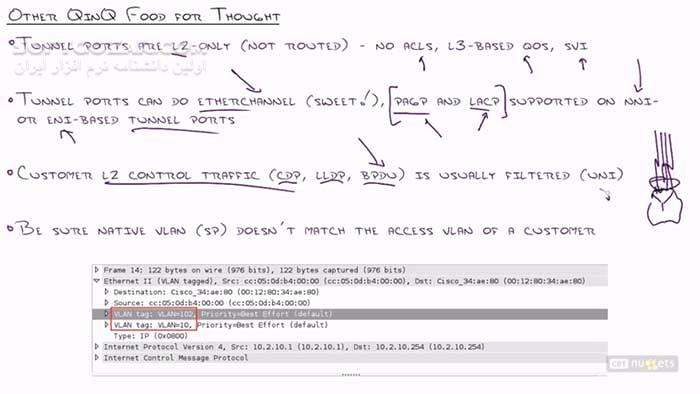 OTHER QINQ FOOD FOR THOUGHT
• TUNNEL PORTS ARE L2-ONLY (NOT ROUTED) - NO ACLS, L3-BASED QOS, SVI
اولین دانشنامه نرم افزار ایران
• TUNNEL PORTS CAN DO ETHERCHANNEL (SWEET!), [PAGP AND LACP] SUPPORTED ON NNI-
OR ENI-BASED TUNNEL PORTS
• CUSTOMER L2 CONTROL TRAFFIC (CDP, LLDP, BPDU) IS USUALLY FILTERED (UNI)
• BE SURE NATIVE VLAN (SP) DOESN'T MATCH THE ACCESS VLAN OF A CUSTOMER
Frame 14: 122 bytes on wire (976 bits), 122 bytes captured (976 bits)
Ethernet II (VLAN tagged), Src: cc:05:0d:b4:00:00 (cc:05:0d:b4:00:00), Dst: Cisco_34:ae:80 (00:12:80:34:ae:80)
Destination: Cisco_34:ae:80 (00:12:80:34:ae:80)
Source: cc:05:0d:b4:00:00 (cc:05:0d:b4:00:00)
VLAN tag: VLAN=102, Priority=Best Effort (default)
VLAN tag: VLAN=10, Priority=Best Effort (default)
Type: IP (0x0800)
Internet Protocol Version 4, Src: 10.2.10.1 (10.2.10.1), Dst: 10.2.10.254 (10.2.10.254)
Internet Control Message Protocol
CBT nuggets